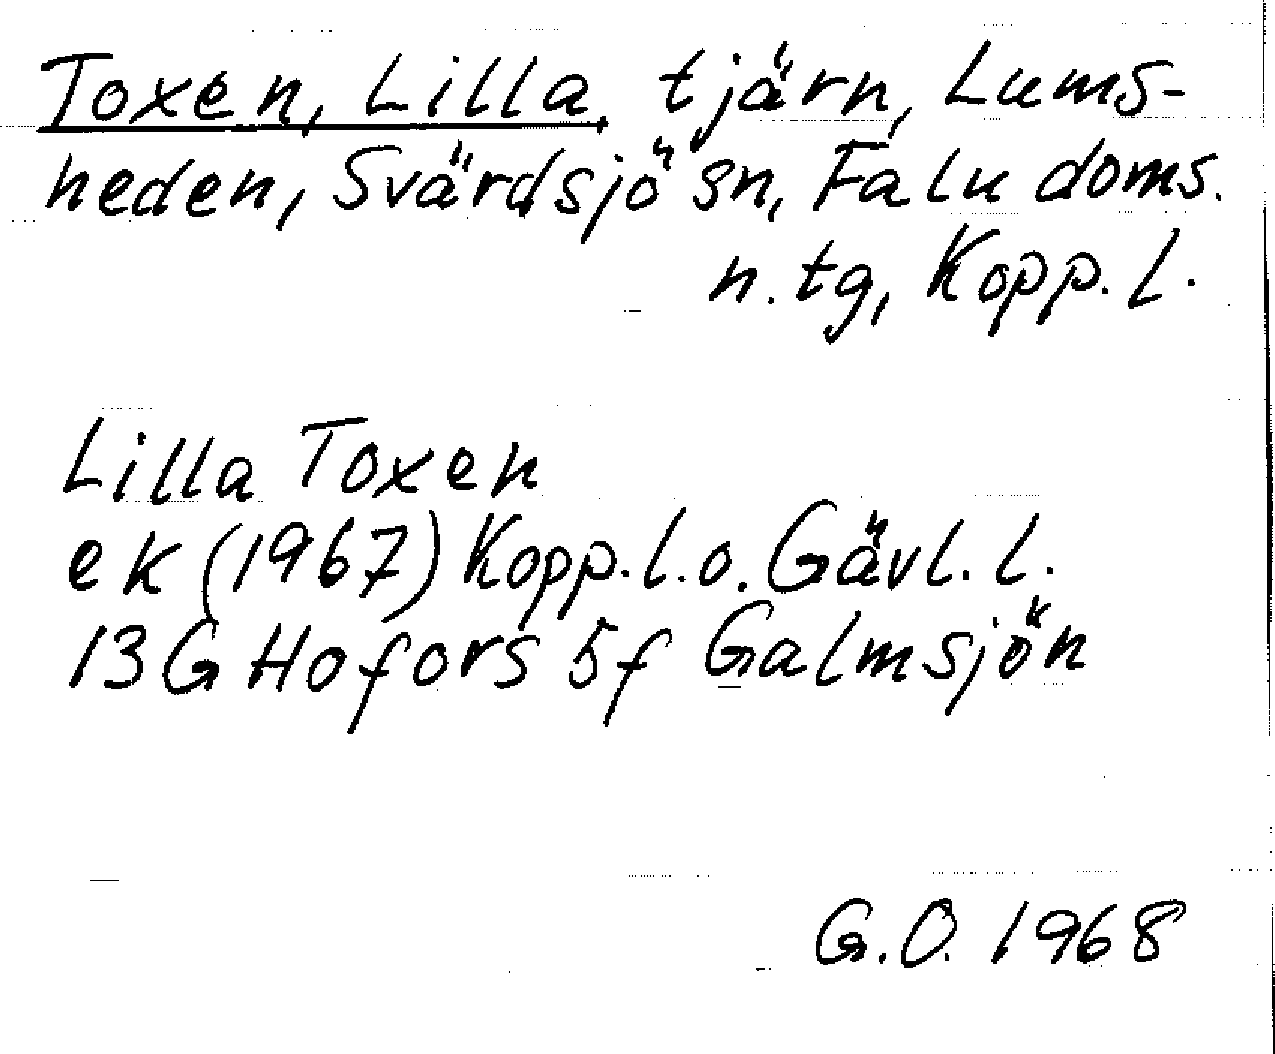 Toxen, Lilla, tjärn, Lums-
heden, Svärdsjö sn, Falu doms.
n. tg, Kopp. l.
Lilla Toxen
ek (1967) Kopp. l. o. Gävl. l.
13G Hofors 5f Galmsjön
G.O. 1968